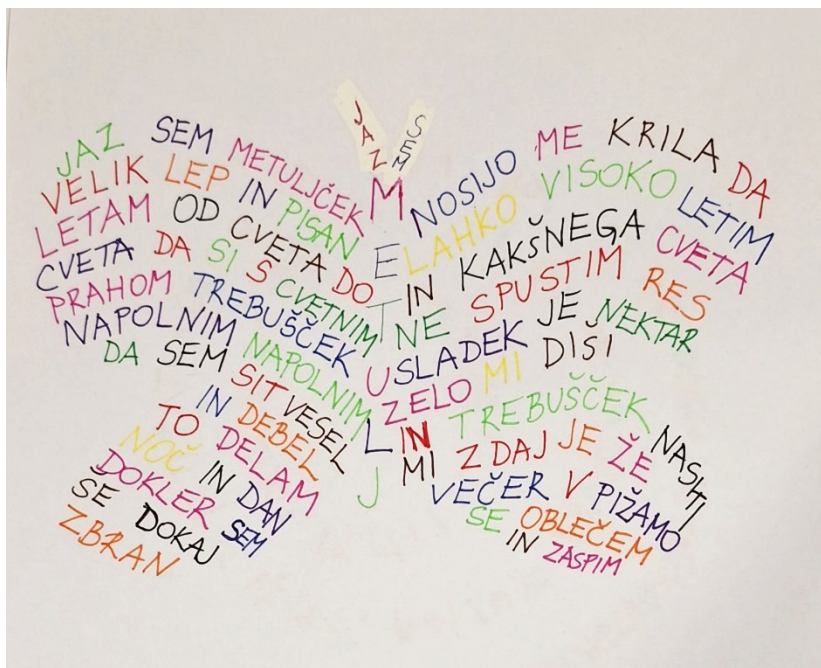 JAZ SEM
METULJ
JAZ SEM METULJČEK
VELIK LEP IN PISAN
LETAM OD CVETA DO
CVETA DA SI S CVETNIM
PRAHOM TREBUŠČEK
NAPOLNIM NAPOLNIM
DA SEM SIT VESEL
IN DEBEL
TO DELAM
NOČ IN DAN
DOKLER SEM
ŠE DOKAJ
ZBRAN
NOSIJO ME KRILA DA
LAHKO VISOKO LETIM
IN KAKŠNEGA CVETA
NE SPUSTIM RES
SLADEK JE NEKTAR
ZELO MI DISI
IN TREBUŠČEK NASITI
MI ZDAJ JE ŽE
VEČER V PIŽAMO
SE OBLEČEM
IN ZASPIM